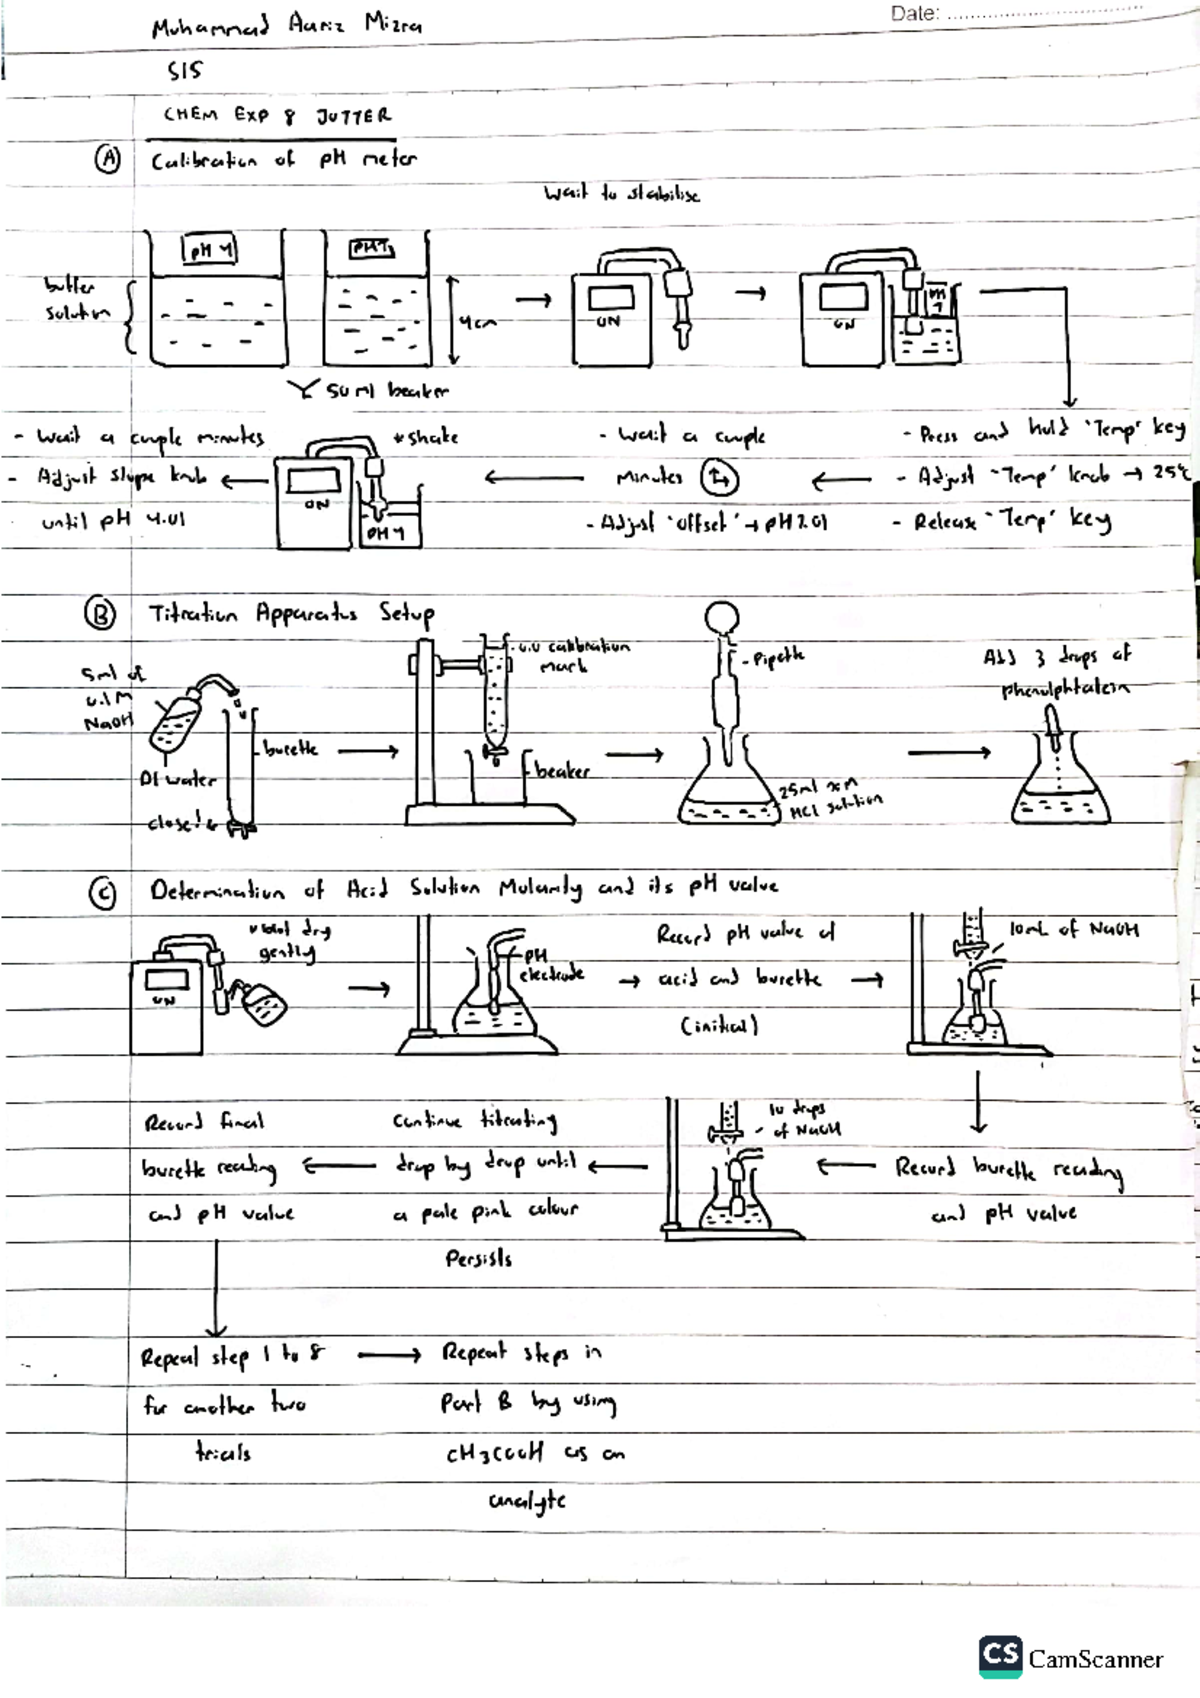 Date:
Muhammad Aariz Mizra
S15
CHEM EXP 8 JOTTER
A Calibration of pH meter
Wait to stabilise
pH 4
pH 7
buffer
solution
4cm
ON
ON
pH
7
50 ml beaker
- Wait a couple minutes
- Adjust slope knob
until pH 4.01
*shake
ON
pH 4
- Wait a couple
minutes
- Adjust 'offset' → pH 7.01
- Press and hold 'Temp' key
- Adjust "Temp" knob → 25°C
- Release "Temp" key
B Titration Apparatus Setup
5ml of
0.1M
NaOH
DI water
close!
burette
0.0 calibration
mark
beaker
- Pipette
25ml xM
HCl solution
Add 3 drops of
phenolphtalein
C Determination of Acid Solution Molarity and its pH value
*blot dry
gently
ON
pH
electrode
Record pH value of
acid and burette
(initial)
10mL of NaOH
Record burette reading
and pH value
10 drops
of NaOH
Continue titrating
drop by drop until
a pale pink colour
Persists
Record final
burette reading
and pH value
Repeat step 1 to 8
for another two
trials
Repeat steps in
Part B by using
CH3COOH as an
analyte
CS CamScanner